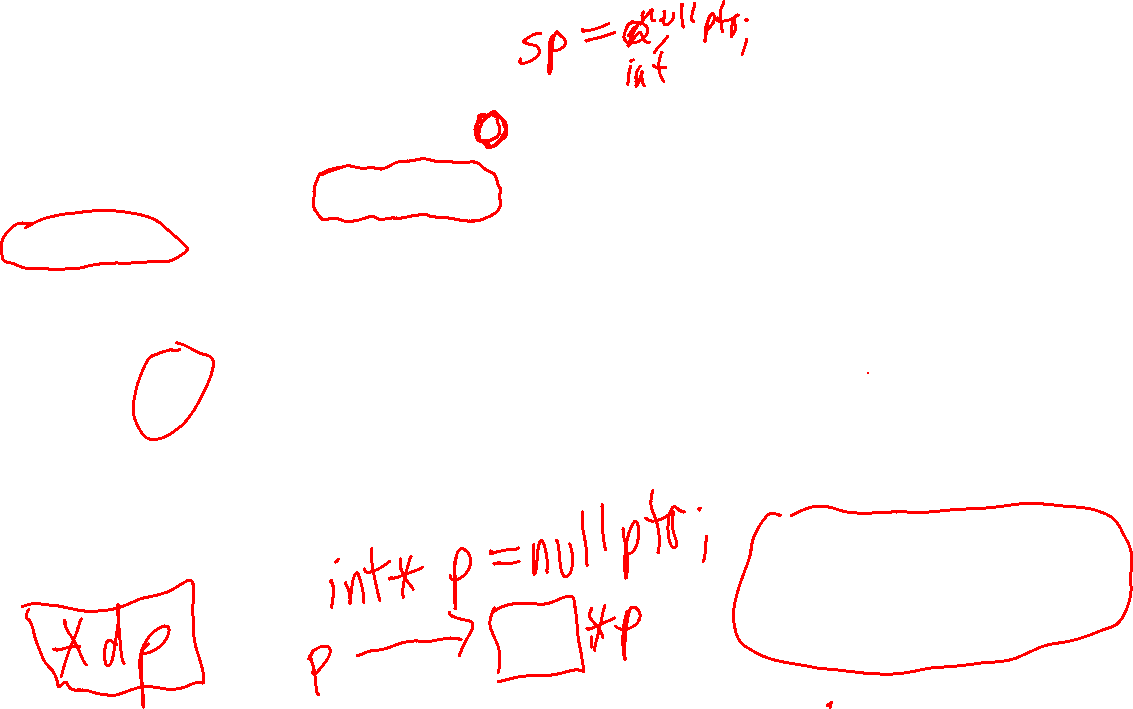 sp = nullptr;
int
int* p = nullptr;
*dp
p
*p